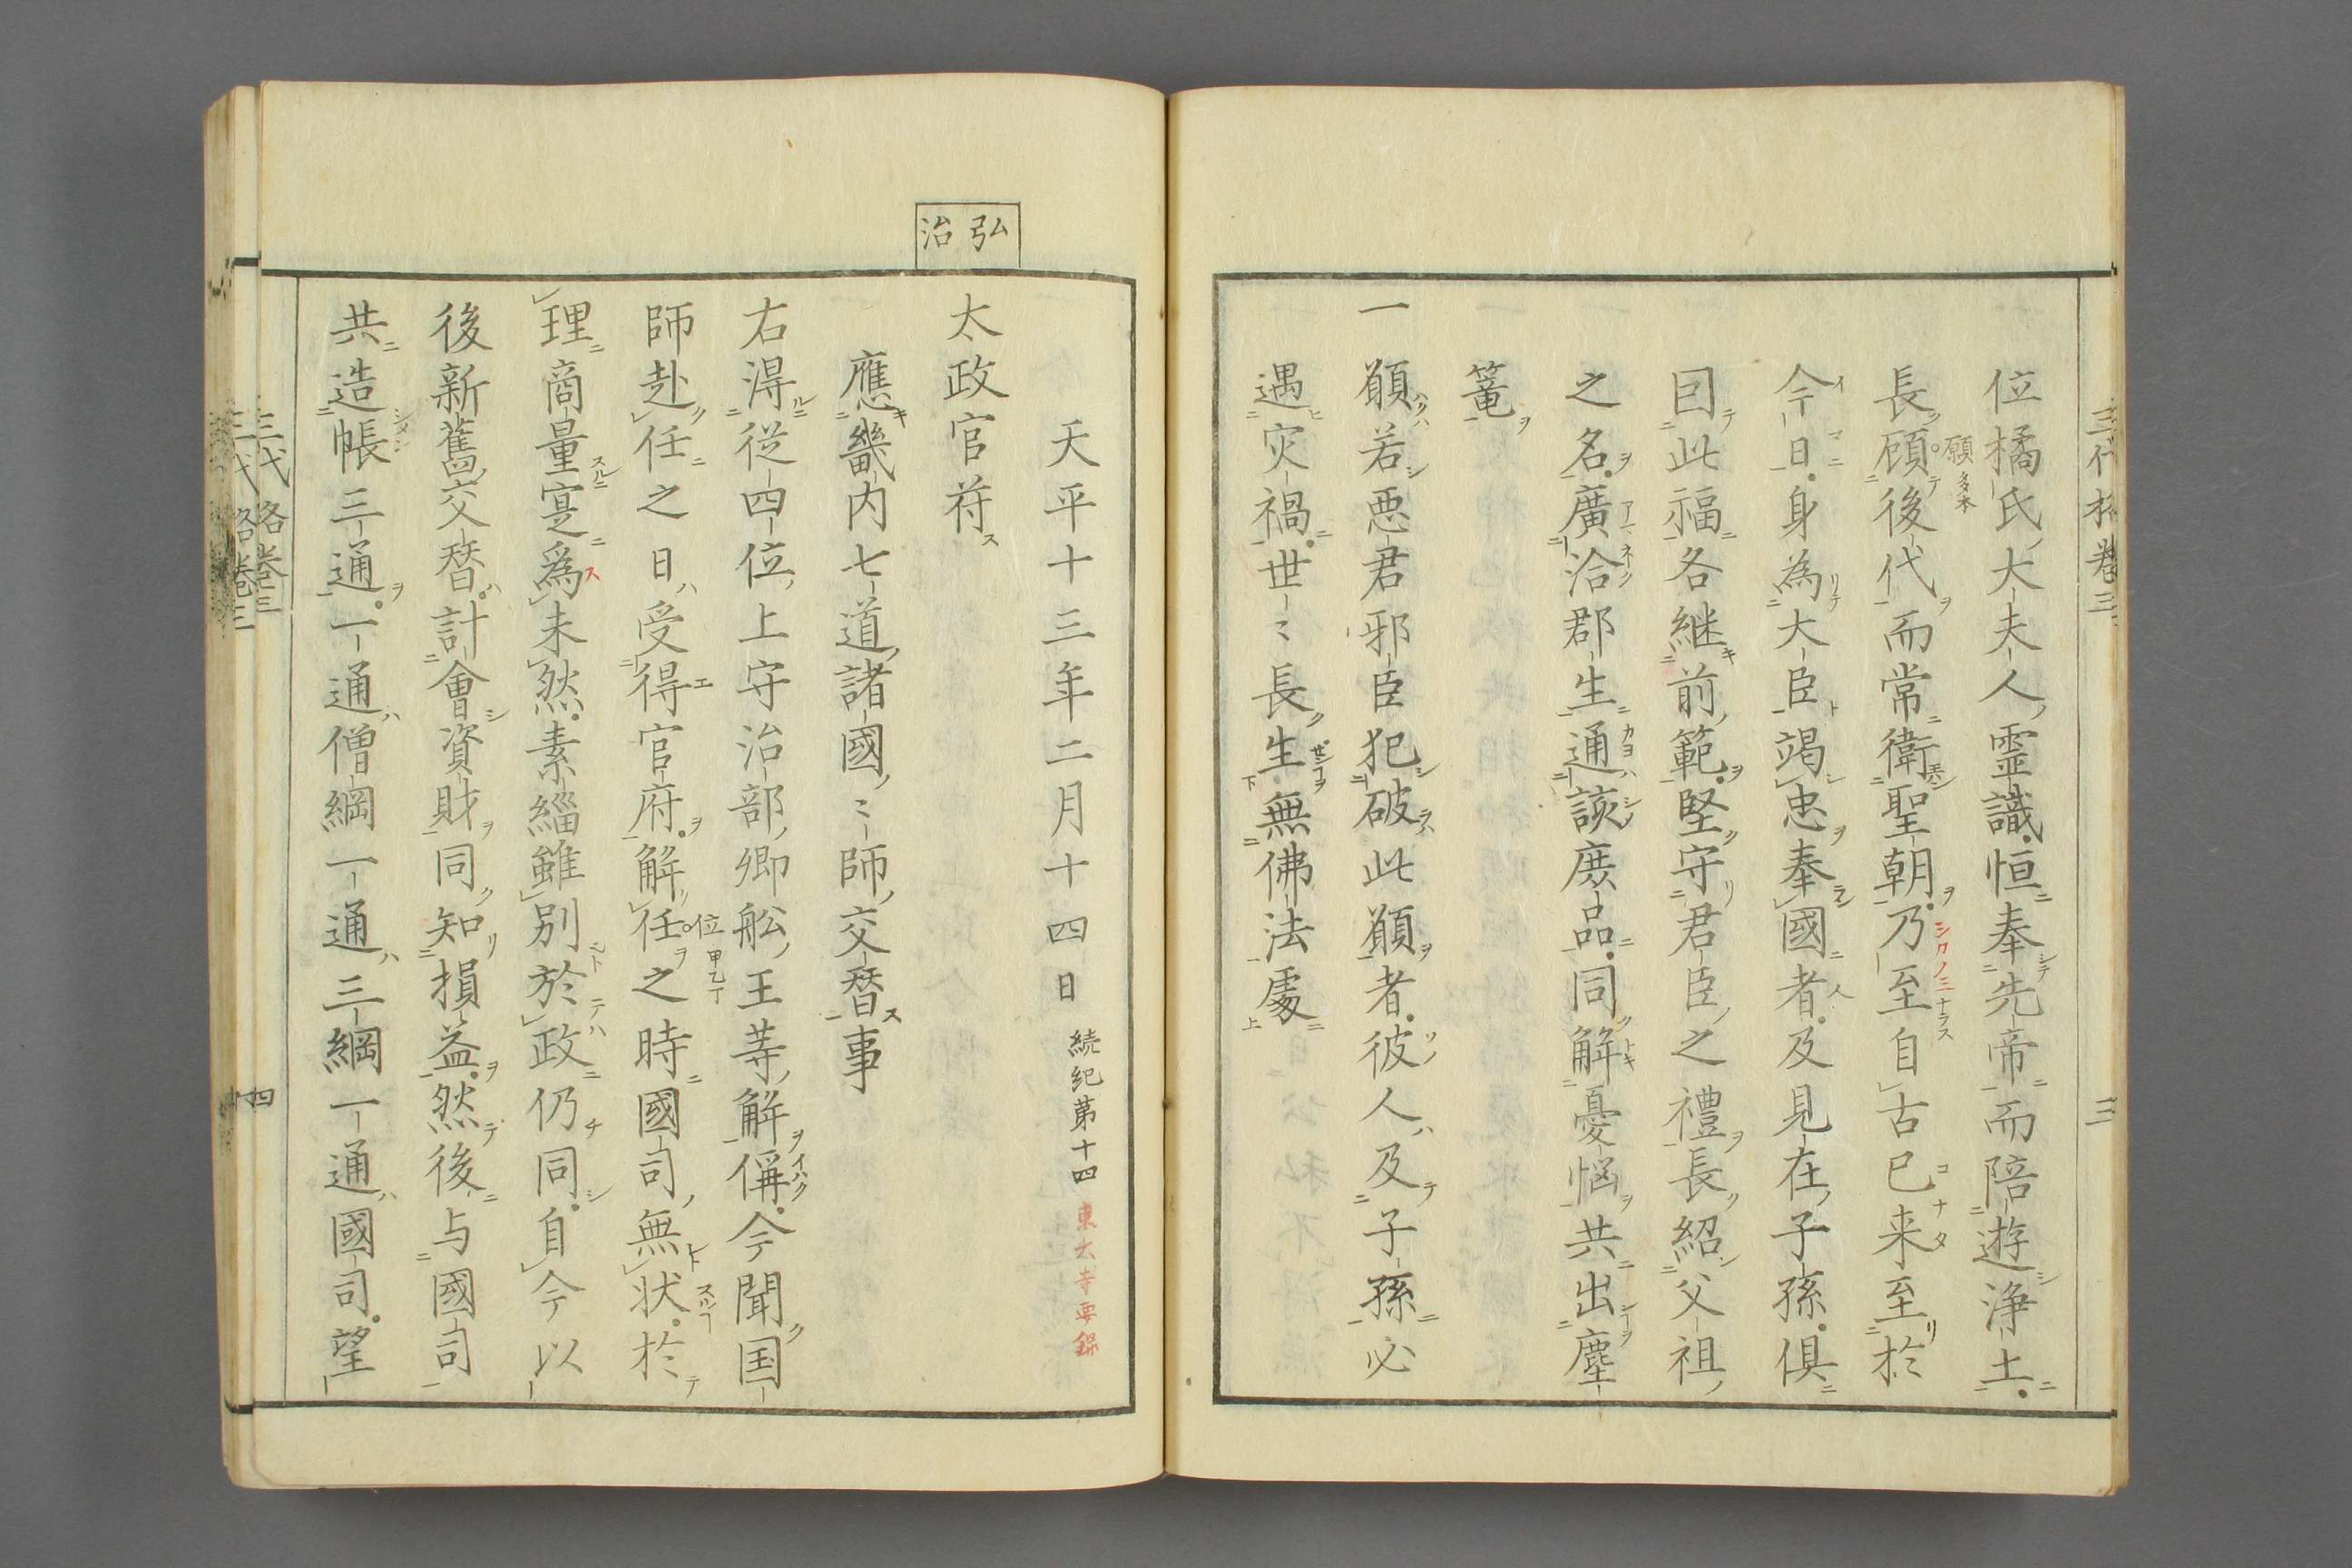 三代格卷三　三
位橘氏大夫人靈識恒奉先帝而陪遊浄土
長顧後代而常衛聖朝乃至自古已来至於
願多本
今日身為大臣竭忠奉國者及見在子孫俱
囙此福各継前範堅守君臣之禮長紹父祖
之名廣洽郡生通該庶品同解憂悩共出塵
篭
一願若悪君邪臣犯破此願者彼人及子孫必
遇灾禍世〻長生無佛法處
天平十三年二月十四日 続紀第十四 東大寺要録
弘治
太政官符
應畿内七道諸國〻師交替事
右淂従四位上守治部卿舩王䓁解偁今聞国
師赴任之日受得官府解任之時國司無状於
位甲乙丁
理商量寔爲未然素緇雖別於政仍同自今以
後新舊交替計會資財同知損益然後与國司
共造帳三通一通僧綱一通三綱一通國司望
三代格卷三　四